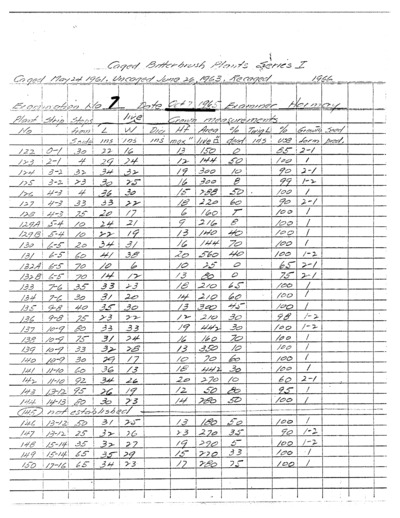 Caged Bitterbrush Plants Series I
Caged May 24 1961. Uncaged June 26, 1963. Recaged 1966
Examination No. 7 Date Oct 7 1965 Examiner Holmgy
Plant Strip Stake live Crown measurements
No from L W Dia Ht Area % Twigh % Growth Seed
South ins ins ins max" live dead ins use form prod.
122 0-1 30 22 16 13 150 0 85 2-1
123 2-1 4 29 24 12 144 50 100 1
124 3-2 32 34 32 19 300 10 90 2-1
125 3-2 23 30 25 16 300 8 99 1-2
126 4-3 4 36 30 15 288 50 100 1
127 4-3 33 33 22 18 220 60 90 2-1
128 4-3 75 20 17 6 160 T 100 1
129A 5-4 10 24 21 9 216 8 100 1
129B 5-4 10 22 19 13 140 40 100 1
130 6-5 20 34 31 16 144 70 100 1
131 6-5 60 41 38 20 560 40 100 1-2
132A 6-5 70 10 6 10 25 0 65 2-1
132B 6-5 70 14 12 13 80 0 75 2-1
133 7-6 35 33 23 18 210 65 100 1
134 7-6 30 31 20 14 210 60 100 1
135 9-8 40 35 30 13 300 45 100 1
136 9-8 75 23 22 12 210 30 98 1-2
137 10-9 80 33 33 19 442 30 100 1-2
138 10-9 75 31 24 16 160 70 100 1
139 10-9 53 32 28 13 350 10 100 1
140 10-9 30 29 17 10 70 60 100 1
141 11-10 60 36 13 18 442 30 100 1
142 11-10 92 34 26 20 270 10 60 2-1
143 13-12 95 26 19 12 50 80 95 1
144 14-13 80 30 23 14 280 50 100 1
(145) not established
146 13-12 50 31 25 13 180 50 100 1
147 13-12 25 32 26 23 270 35 90 1-2
148 15-14 35 32 27 19 290 5 100 1-2
149 15-14 65 35 29 15 270 33 100 1
150 17-16 65 34 23 17 280 25 100 1